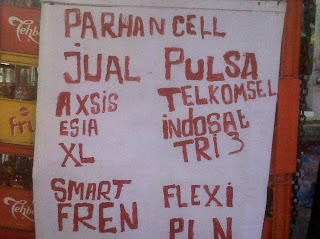 PARHAN CELL
JUAL PULSA
AXSIS TELKOMSEL
ESIA indosat
XL TRI 3
SMART FLEXI
FREN PLN
Tehbo
fru
Tehbo